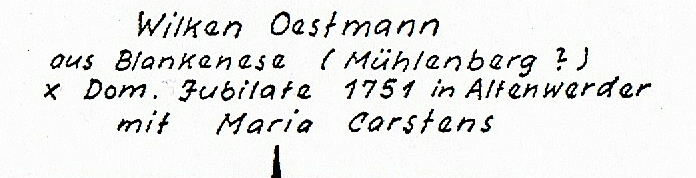 Wilken Oestmann
aus Blankenese (Mühlenberg?)
x Dom. Jubilate 1751 in Altenwerder
mit Maria Carstens